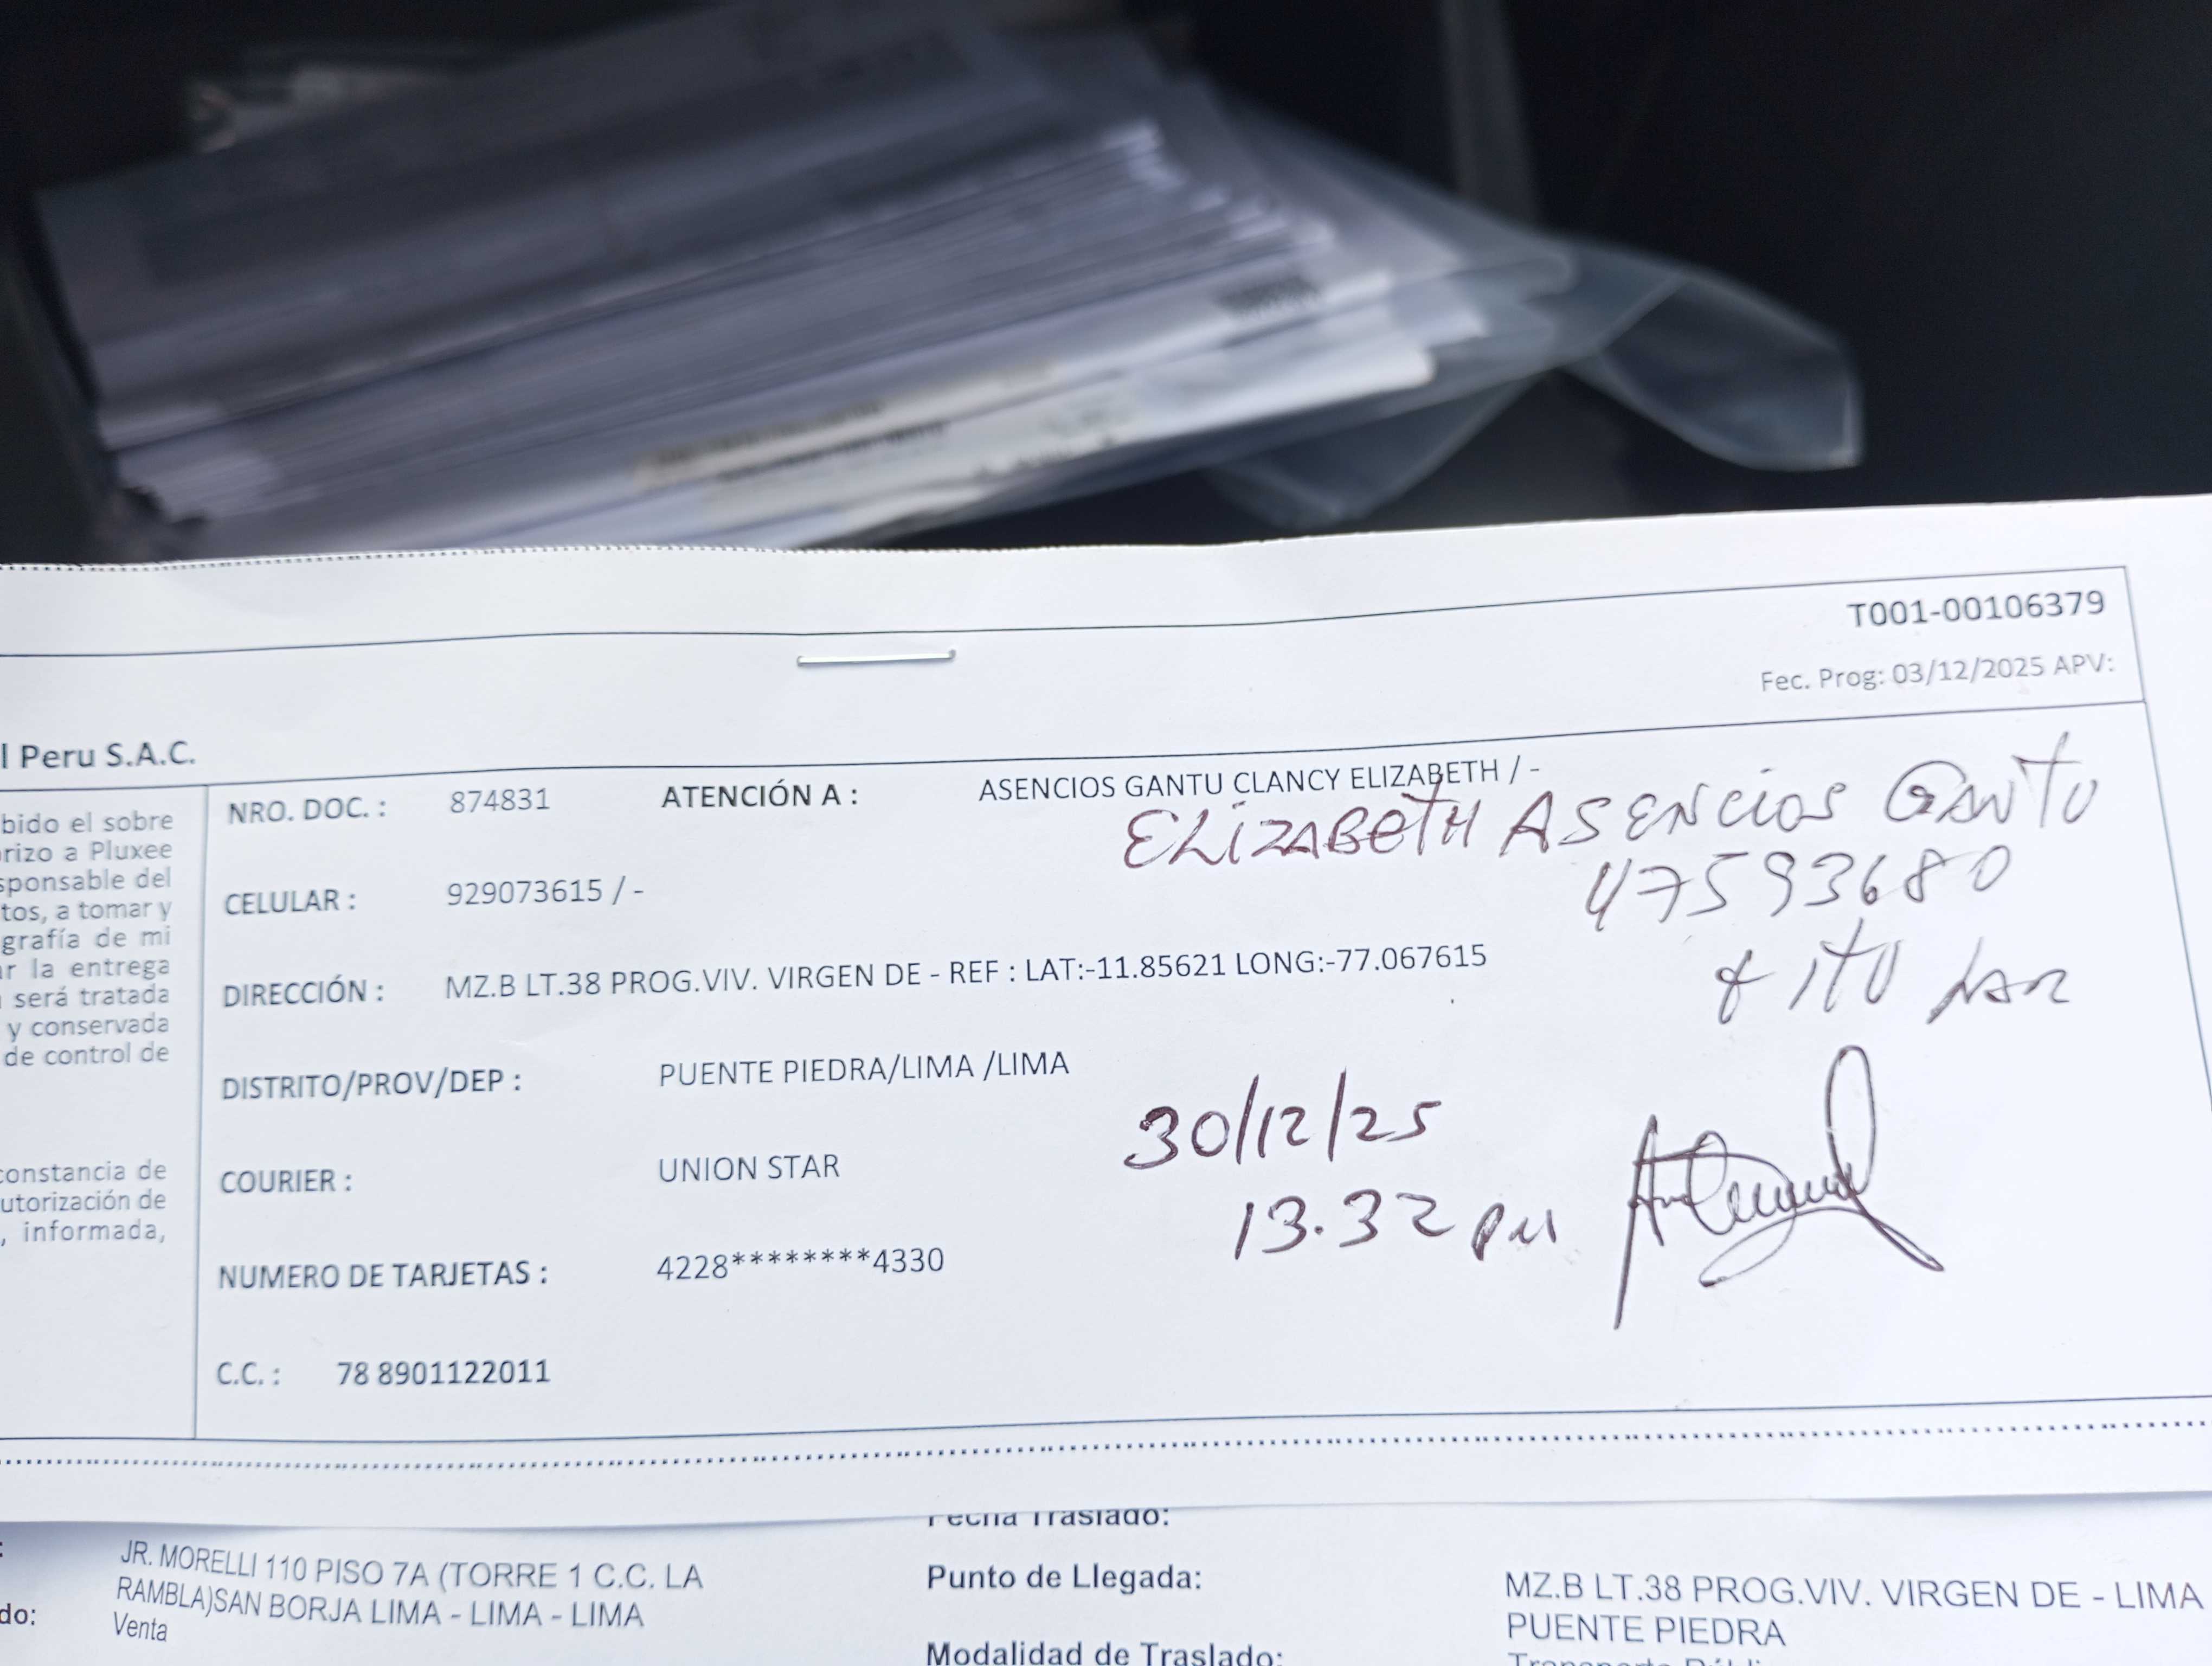 T001-00106379
Fec. Prog: 03/12/2025 APV:
l Peru S.A.C.
bido el sobre
rizo a Pluxee
sponsable del
tos, a tomar y
grafía de mi
r la entrega
será tratada
y conservada
de control de
constancia de
utorización de
, informada,
NRO. DOC. : 874831 ATENCIÓN A : ASENCIOS GANTU CLANCY ELIZABETH / -
ELIZABETH ASENCIOS GANTU
47593680
CELULAR : 929073615 / -
DIRECCIÓN : MZ.B LT.38 PROG.VIV. VIRGEN DE - REF : LAT:-11.85621 LONG:-77.067615
DISTRITO/PROV/DEP : PUENTE PIEDRA/LIMA /LIMA
30/12/25
13.32 PM
COURIER : UNION STAR
NUMERO DE TARJETAS : 4228********4330
C.C. : 78 8901122011
JR. MORELLI 110 PISO 7A (TORRE 1 C.C. LA
RAMBLA)SAN BORJA LIMA - LIMA - LIMA
do:
Venta
Fecha Traslado:
Punto de Llegada: MZ.B LT.38 PROG.VIV. VIRGEN DE - LIMA
PUENTE PIEDRA
Modalidad de Traslado: